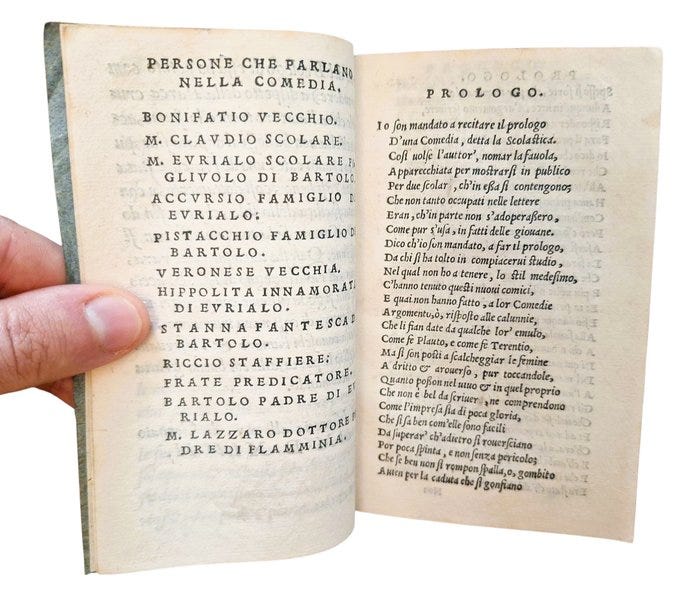 PERSONE CHE PARLANO
NELLA COMEDIA.
BONIFATIO VECCHIO.
M. CLAVDIO SCOLARE.
M. EVRIALO SCOLARE
GLIVOLO DI BARTOLO.
ACCVRSIO FAMIGLIO D
EVRIALO:
PISTACCHIO FAMIGLIO D
BARTOLO.
VERONESE VECCHIA.
HIPPOLITA INNAMORAT
DI EVRIALO.
STANNA FANTESCA D
BARTOLO.
RICCIO STAFFIERE:
FRATE PREDICATORE.
BARTOLO PADRE DI EV
RIALO.
M. LAZZARO DOTTORE P
DRE DI FLAMMINIA.
PROLOGO.
Io son mandato a recitare il prologo
D'una Comedia, detta la Scolastica.
Così uolse l'auttor', nomar la fauola,
Apparecchiata per mostrarsi in publico
Per due scolar, ch'in essa si contengono;
Che non tanto occupati nelle lettere
Eran, ch'in parte non s'adoperassero,
Come pur s'usa, in fatti delle giouane.
Dico ch'io son mandato, a far il prologo,
Da chi si ha tolto in compiacerui studio,
Nel qual non ho a tenere, lo stil medesimo,
C'hanno tenuto questi nuoui comici,
E quai non hanno fatto, a lor Comedie
Argomento, ò, risposto alle calunnie,
Che li fian date da qualche lor' emulo,
Come fè Plauto, e come fè Terentio,
Ma si son posti a scalcheggiar le femine
A dritto & a rouerso, pur toccandole,
Quanto posson nel uiuo & in quel proprio
Che non è bel da scriuer, ne comprendono
Come l'impresa sia di poca gloria,
Che si sa ben com'elle sono facili
Da superar' ch'adietro si rouersciano
Per poca spinta, e non senza pericolo;
Che se ben non si rompon spalla, o, gombito
Auien per la caduta che si gonfiano